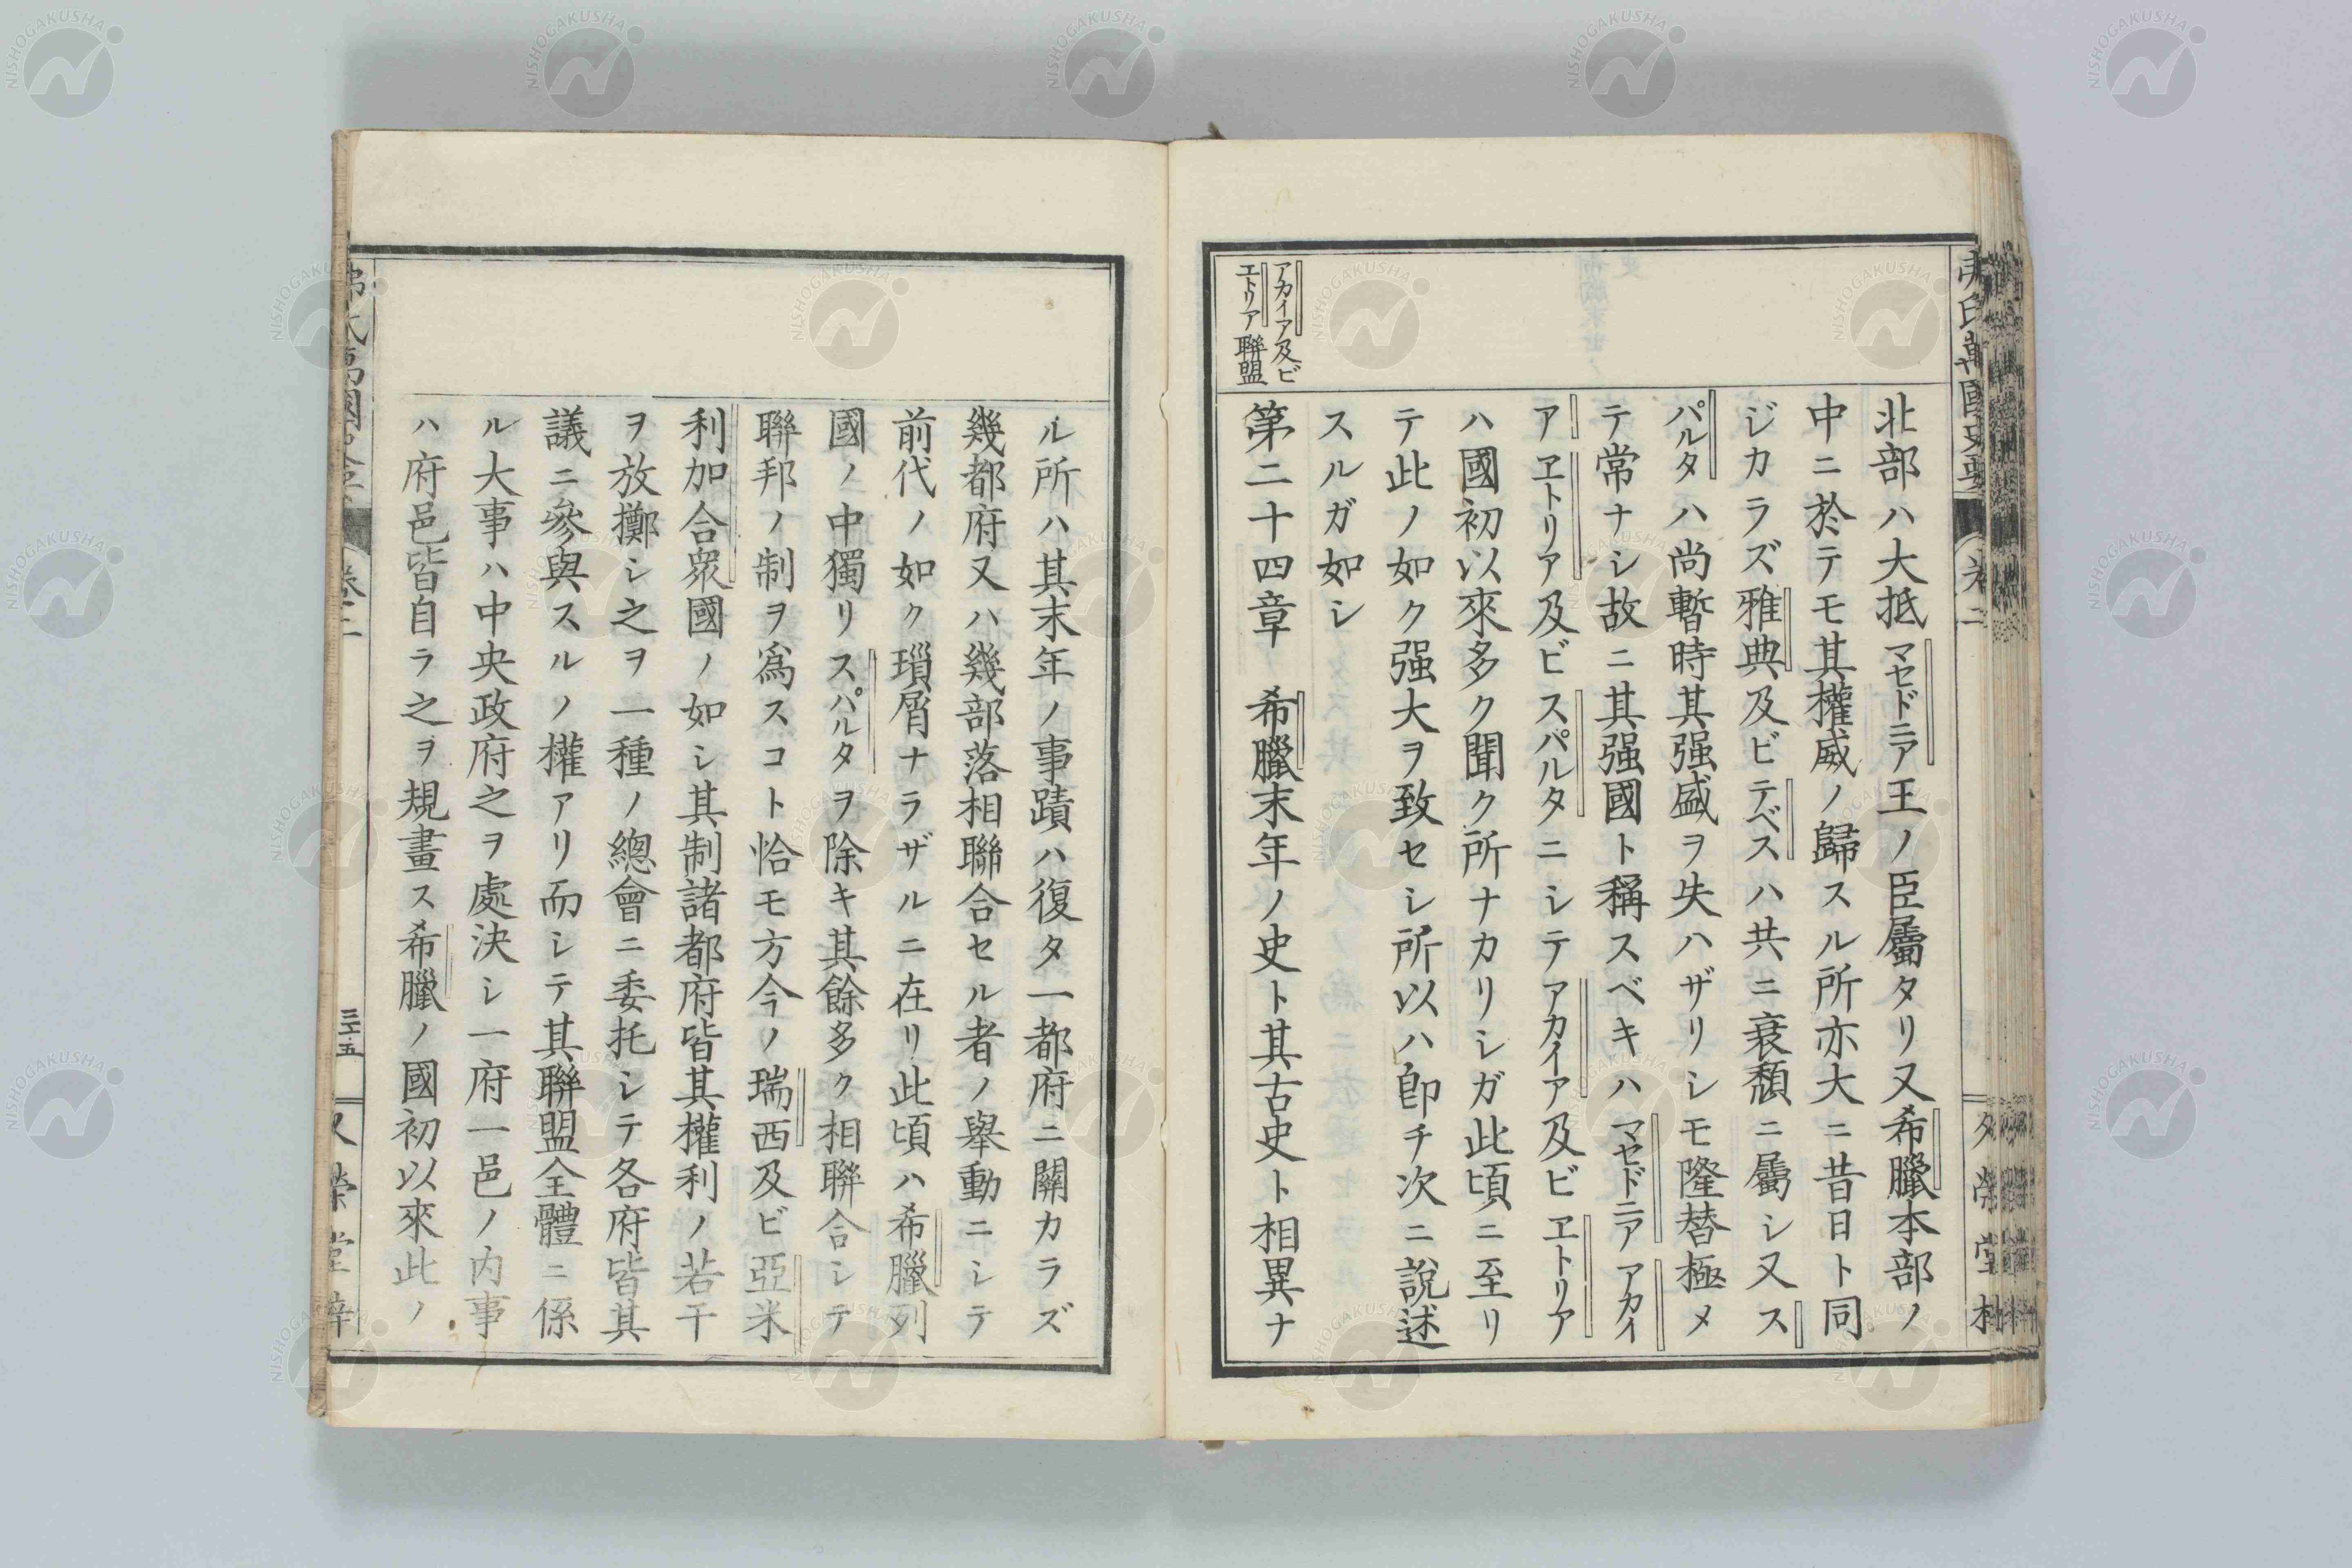 北部ハ大抵マセドニア王ノ臣屬タリ又希臘本部ノ
中ニ於テモ其權威ノ歸スル所亦大ニ昔日ト同
ジカラズ雅典及ビテベスハ共ニ衰頽ニ屬シ又ス
パルタハ尚暫時其强盛ヲ失ハザリシモ隆替極メ
テ常ナシ故ニ其强國ト稱スベキハマセドニアアカイ
アヱトリア及ビスパルタニシテアカイア及ビヱトリア
ハ國初以來多ク聞ク所ナカリシガ此頃ニ至リ
テ此ノ如ク强大ヲ致セシ所以ハ卽チ次ニ說述
スルガ如シ
アカイア及ビ
エトリア聯盟
第二十四章 希臘末年ノ史ト其古史ト相異ナ
ル所ハ其末年ノ事蹟ハ復タ一都府ニ關カラズ
幾都府又ハ幾部落相聯合セル者ノ舉動ニシテ
前代ノ如ク瑣屑ナラザルニ在リ此頃ハ希臘列
國ノ中獨リスパルタヲ除キ其餘多ク相聯合シテ
聯邦ノ制ヲ爲スコト恰モ方今ノ瑞西及ビ亞米
利加合衆國ノ如シ其制諸都府皆其權利ノ若干
ヲ放擲シ之ヲ一種ノ總會ニ委托シテ各府皆其
議ニ參與スルノ權アリ而シテ其聯盟全體ニ係
ル大事ハ中央政府之ヲ處決シ一府一邑ノ内事
ハ府邑皆自ラ之ヲ規畫ス希臘ノ國初以來此ノ
卷二
三十五
NISHOGAKUSHA